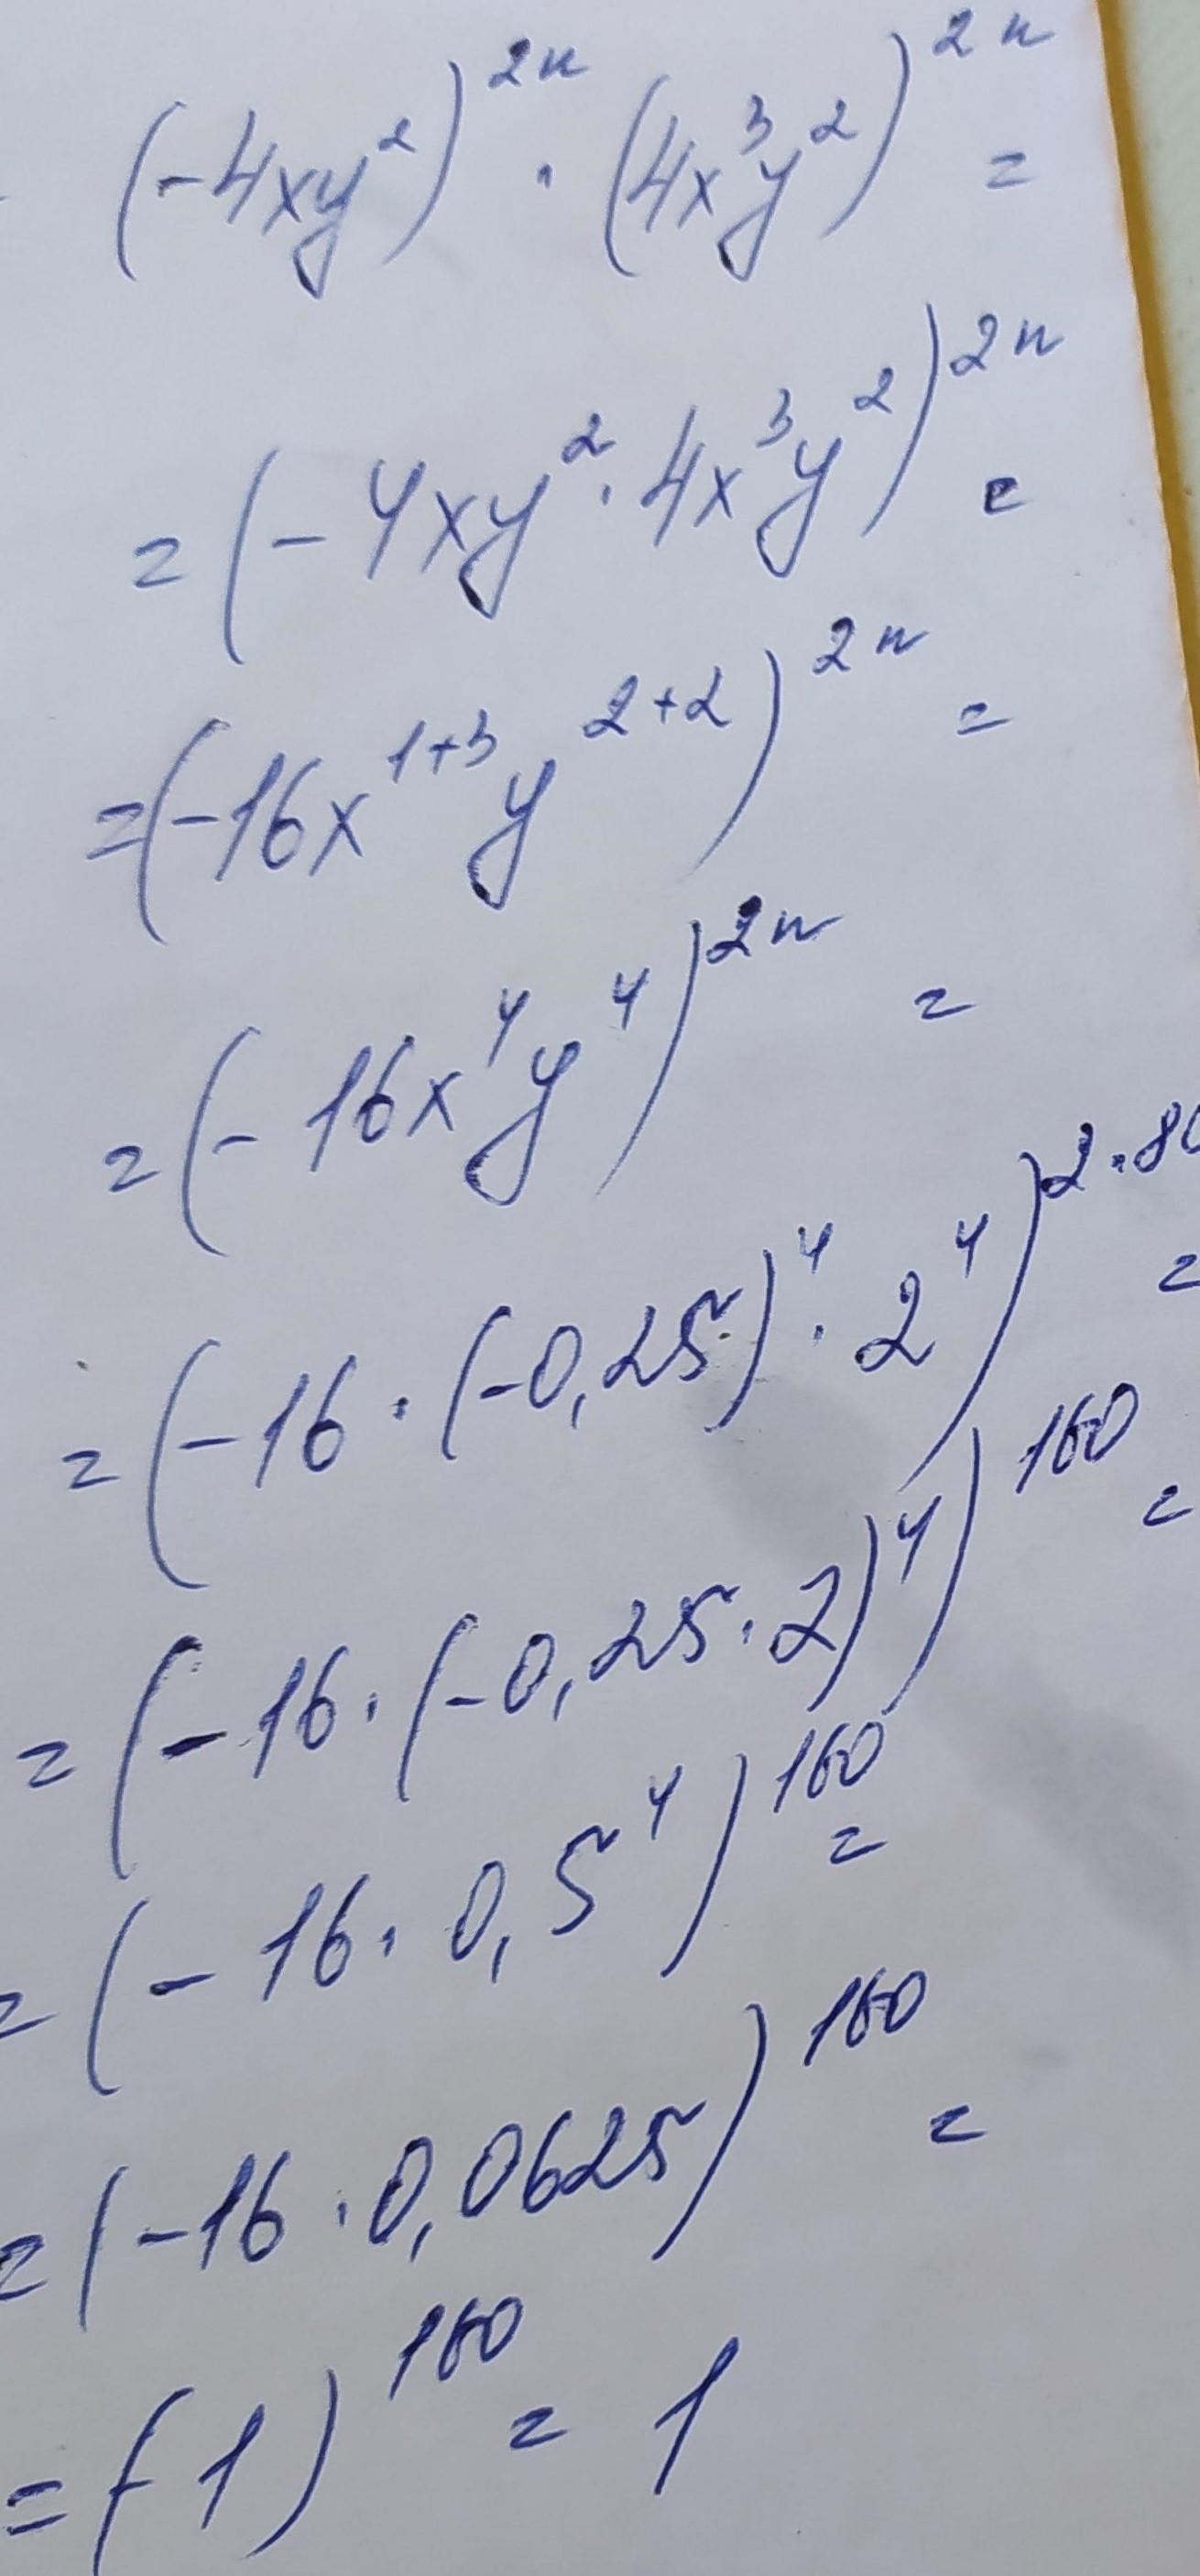 (-4xy²)²ⁿ · (4x³y²)²ⁿ =
= (-4xy² · 4x³y²)²ⁿ =
= (-16x¹⁺³y²⁺²)²ⁿ =
= (-16x⁴y⁴)²ⁿ =
= (-16 · (-0,25)⁴ · 2⁴)²·⁸⁰ =
= (-16 · (-0,25 · 2)⁴)¹⁶⁰ =
= (-16 · 0,5⁴)¹⁶⁰ =
= (-16 · 0,0625)¹⁶⁰ =
= (-1)¹⁶⁰ = 1